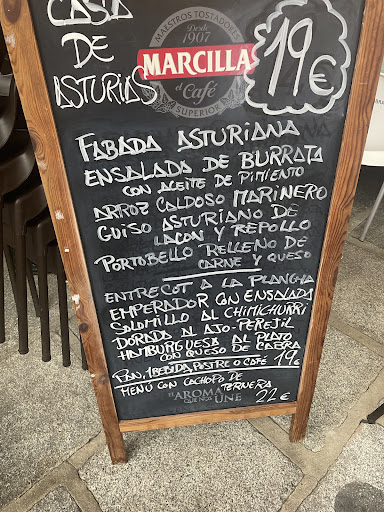 CASA
DE
ASTURIAS
MAESTROS TOSTADORES
Desde
1907
MARCILLA
el Café
SUPERIOR
19€
FABADA ASTURIANA
ENSALADA DE BURRATA
CON ACEITE DE PIMIENTO
ARROZ CALDOSO MARINERO
GUISO ASTURIANO DE
LACON Y REPOLLO
PORTOBELLO RELLENO DE
CARNE Y QUESO
ENTRECOT A LA PLANCHA
EMPERADOR CON ENSALADA
SOLOMILLO AL CHIMICHURRI
DORADA AL AJO-PEREJIL
HAMBURGUESA AL PLATO
CON QUESO DE CABRA
PAN, 1 BEBIDA, POSTRE O CAFÉ 19€
MENÚ CON CACHOPO DE
TERNERA
22€
EL AROMA
QUE NOS UNE